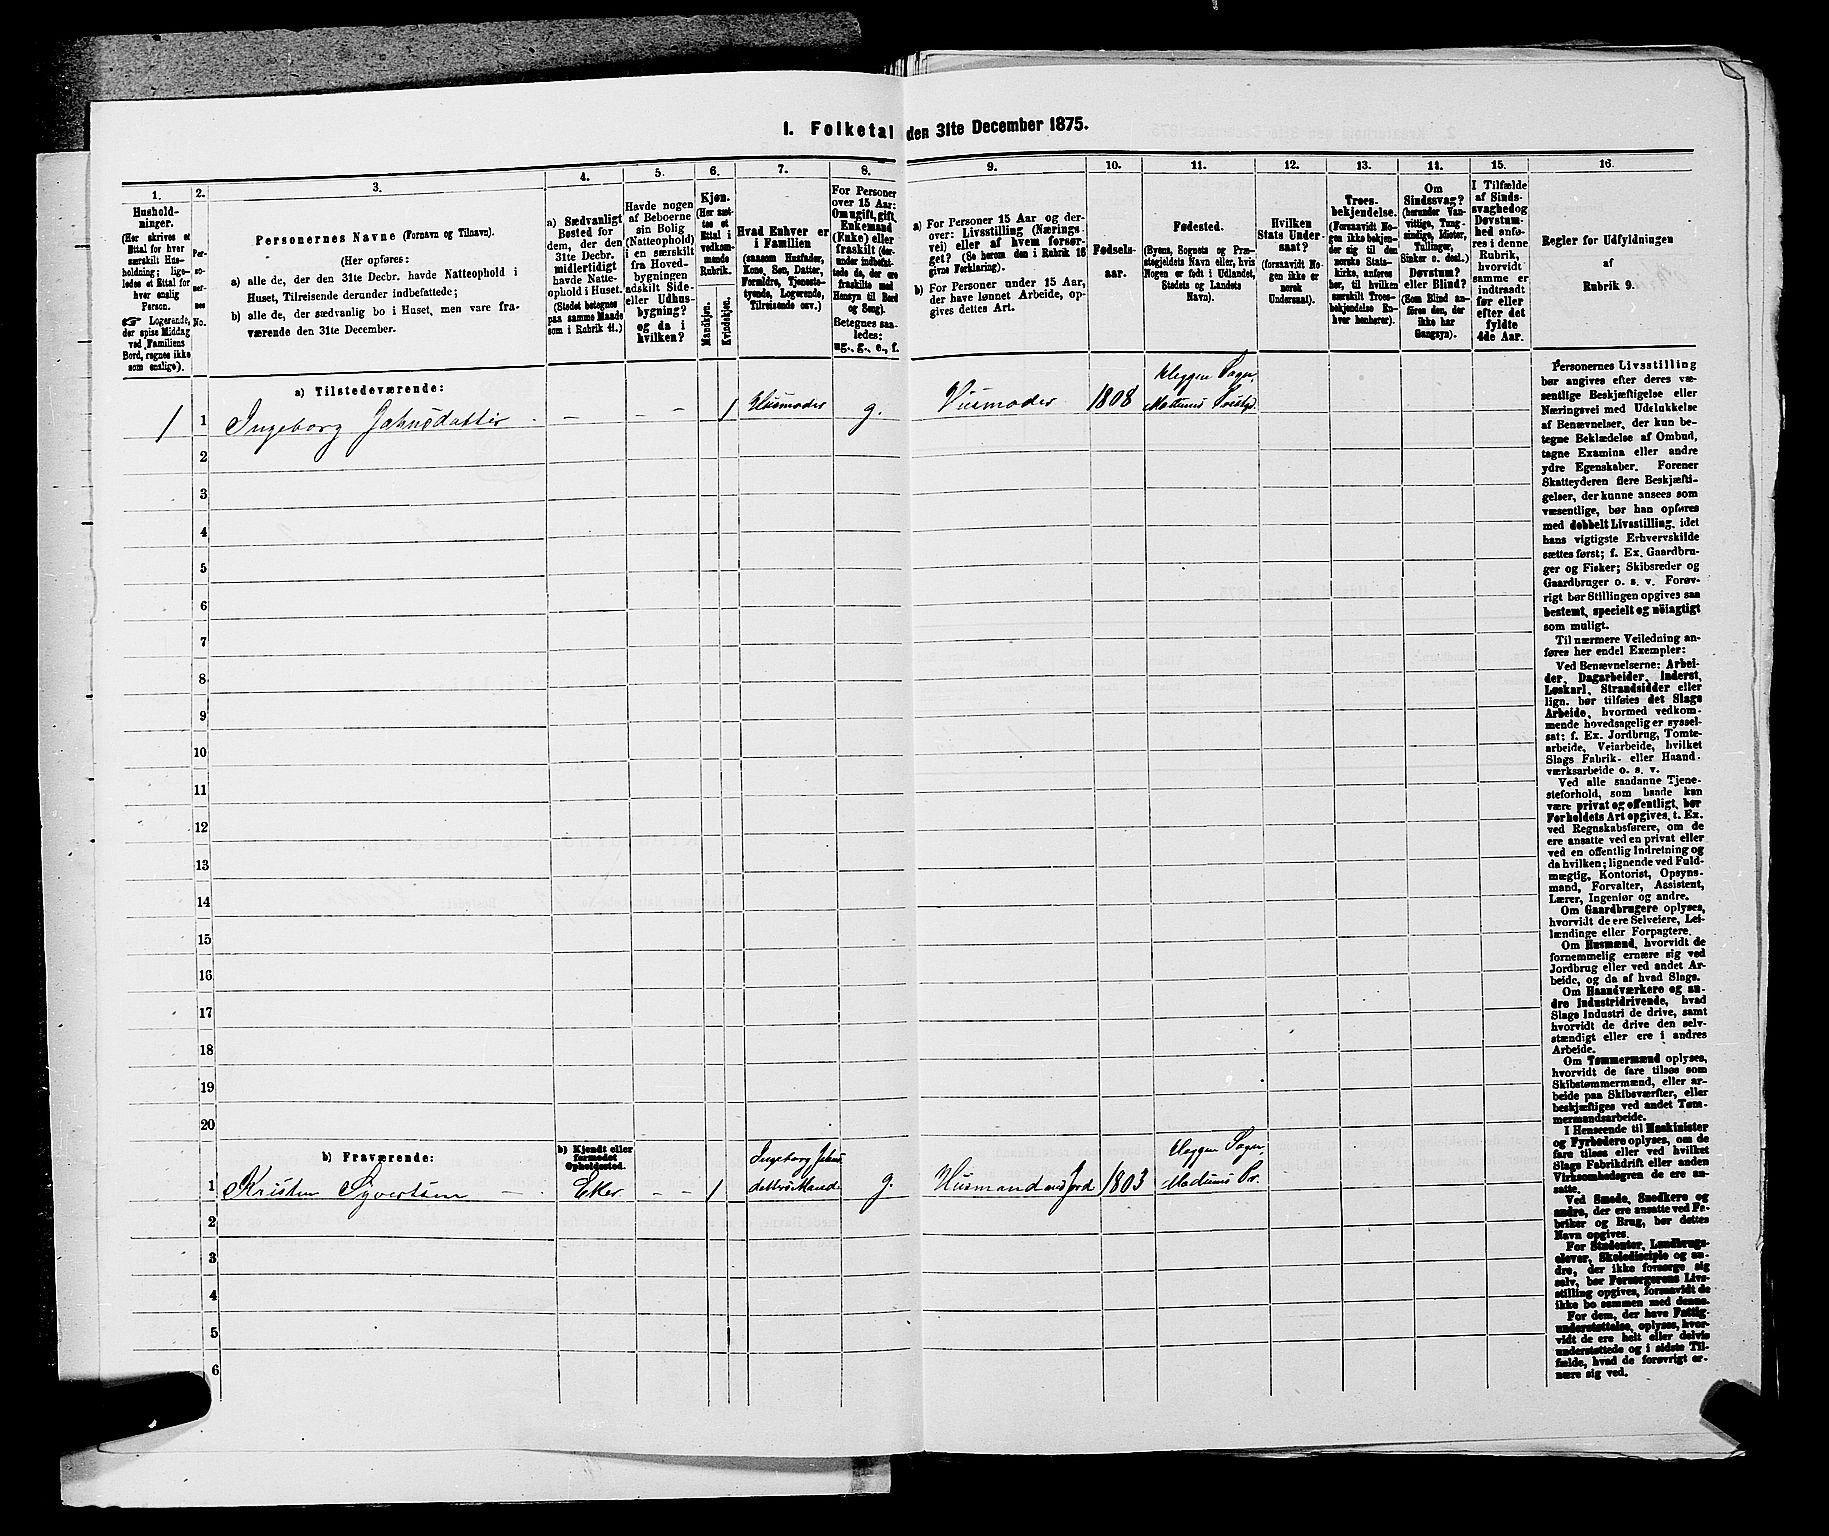 I. Folketal den 31te December 1875.
1.
Hushold-
ninger.
(Her skrives et
Ettal for hver
særskilt Hus-
holdning; lige-
ledes et Ettal for
hver enslig
Person.
☞ Logerende,
der spise Middag
ved Familiens
Bord, regnes ikke
som enslige).
2.
Per-
so-
ner-
nes
No.
3.
Personernes Navne (Fornavn og Tilnavn).
(Her opføres:
a) alle de, der den 31te Decbr. havde Natteophold i
Huset, Tilreisende derunder indbefattede;
b) alle de, der sædvanlig bo i Huset, men vare fra-
værende den 31te December.
4.
a) Sædvanligt
Bosted for
dem, der den
31te Decbr.
midlertidigt
havde Natte-
ophold i Huset.
(Stedet betegnes
paa samme Maade
som i Rubrik 11.)
5.
Havde nogen
af Beboerne
sin Bolig
(Natteophold)
i en særskilt
fra Hoved-
bygningen
adskilt Side-
eller Udhus-
bygning?
og da i
hvilken?
6.
Kjøn.
(Her sæt-
tes et
Ettal i
vedkom-
mende
Rubrik.
Mandkjøn.
Kvindekjøn.
7.
Hvad Enhver er
i Familien
(saasom Husfader,
Kone, Søn, Datter,
Forældre, Tjeneste-
tyende, Logerende,
Tilreisende osv.)
8.
For Personer
over 15 Aar:
Om ugift, gift,
Enkemand
(Enke) eller
fraskilt (der-
under indbefat-
tede de, der ere
fraskilte med
Hensyn til Bord
og Seng).
Betegnes saa-
ledes:
ug., g., e., f.
9.
a) For Personer 15 Aar og der-
over: Livsstilling (Nærings-
vei) eller af hvem forsør-
get? (Se herom den i Rubrik 16
givne Forklaring).
b) For Personer under 15 Aar,
der have lønnet Arbeide, op-
gives dettes Art.
10.
Fødsels-
aar.
11.
Fødested.
(Byens, Sognets og Præ-
stegjeldets Navn eller, hvis
Nogen er født i Udlandet,
Stedets og Landets
Navn).
12.
Hvilken
Stats Under-
saat?
(forsaavidt No-
gen ikke er
norsk
Undersaat).
13.
Troes-
bekjendelse.
(Forsaavidt No-
gen ikke bekjen-
der sig til den
norske Stats-
kirke, anføres
her, til hvilken
særskilt Troes-
bekjendelse En-
hver henhører).
14.
Om
Sindssvag?
(herunder Van-
vittige, Tung-
sindige, Idioter,
Tullinger,
Sinker o. desl.)
Døvstum?
eller Blind?
(Som Blind an-
føres den, der
ikke har
Gangsyn).
15.
I Tilfælde
af Sinds-
svaghed og
Døvstum-
hed anfø-
res i denne
Rubrik,
hvorvidt
samme er
indtraadt
før eller
efter det
fyldte
4de Aar.
16.
Regler for Udfyldningen
af
Rubrik 9.
a) Tilstedeværende:
1 1 Ingeborg Johnsdatter – – – 1 Husmoder g. Husmoder 1808 Heggen Sogn, Modums Prestgj.
2
3
4
5
6
7
8
9
10
11
12
13
14
15
16
17
18
19
20
b) Fraværende:
b) Kjendt eller
formodet
Opholdssted.
1 Kristen Syvertsen – Eker – – 1 Ingeborg Johns- datters Mand g. Husmand med Jord 1803 Heggen Sogn, Modums Pr.
2
3
4
5
6
Personernes Livsstilling
bør angives efter deres væ-
sentlige Beskjæftigelse eller
Næringsvei med Udelukkelse
af Benævnelser, der kun be-
tegne Beklædelse af Ombud,
tagne Examina eller andre
ydre Egenskaber. Forener
Skatteyderen flere Beskjæfti-
gelser, der kunne ansees som
væsentlige, bør han opføres
med dobbelt Livsstilling, idet
hans vigtigste Erhvervskilde
sættes først; f. Ex. Gaardbru-
ger og Fisker; Skibsreder og
Gaardbruger o. s. v. Forøv-
rigt bør Stillingen opgives saa
bestemt, specielt og nöiagtigt
som muligt.
Til nærmere Veiledning an-
føres her endel Exempler:
Ved Benævnelserne: Arbei-
der, Dagarbeider, Inderst,
Løskarl, Strandsidder eller
lign. bør tilføies det Slags
Arbeide, hvormed vedkom-
mende hovedsagelig er syssel-
sat; f. Ex. Jordbrug, Tomte-
arbeide, Veiarbeide, hvilket
Slags Fabrik- eller Haand-
værksarbeide o. s. v.
Ved alle saadanne Tjene-
steforhold, som baade kan
være privat og offentligt, bør
Forholdets Art opgives, t. Ex.
ved Regnskabsførere, om de
ere ansatte ved en privat eller
ved en offentlig Indretning og
da hvilken; lignende ved Fuld-
mægtig, Kontorist, Opsyns-
mand, Forvalter, Assistent,
Lærer, Ingeniør og andre.
Om Gaardbrugere oplyses,
hvorvidt de ere Selveiere, Lei-
lændinge eller Forpagtere.
Om Husmænd, hvorvidt de
fornemmelig ernære sig ved
Jordbrug eller ved andet Ar-
beide, og da af hvad Slags.
Om Haandværkere og an-
dre Industridrivende, hvad
Slags Industri de drive, samt
hvorvidt de drive den selv-
stændigt eller ere i andres
Arbeide.
Om Tømmermænd oplyses,
hvorvidt de fare tilsøs som
Skibstømmermænd, eller ar-
beide paa Skibsværfter, eller
beskjæftiges ved andet Tøm-
mermandsarbeide.
I Henseende til Maskinister
og Fyrbødere oplyses, om de
fare tilsøs eller ved hvilket
Slags Fabrikdrift eller anden
Virksomhedsgren de ere an-
satte.
Ved Smede, Snedkere og
andre, der ere ansatte ved Fa-
briker og Brug, bør dettes
Navn opgives.
For Studenter, Landbrugs-
elever, Skoledisciple og an-
dre, der ikke forsørge sig
selv, bør Forsørgerens Livs-
stilling opgives, forsaavidt de
ikke bo sammen med denne.
For dem, der have Fattig-
understøttelse, oplyses, hvor-
vidt de ere helt eller delvis
understøttede og i sidste Til-
fælde, hvad de forøvrigt er-
nære sig ved.